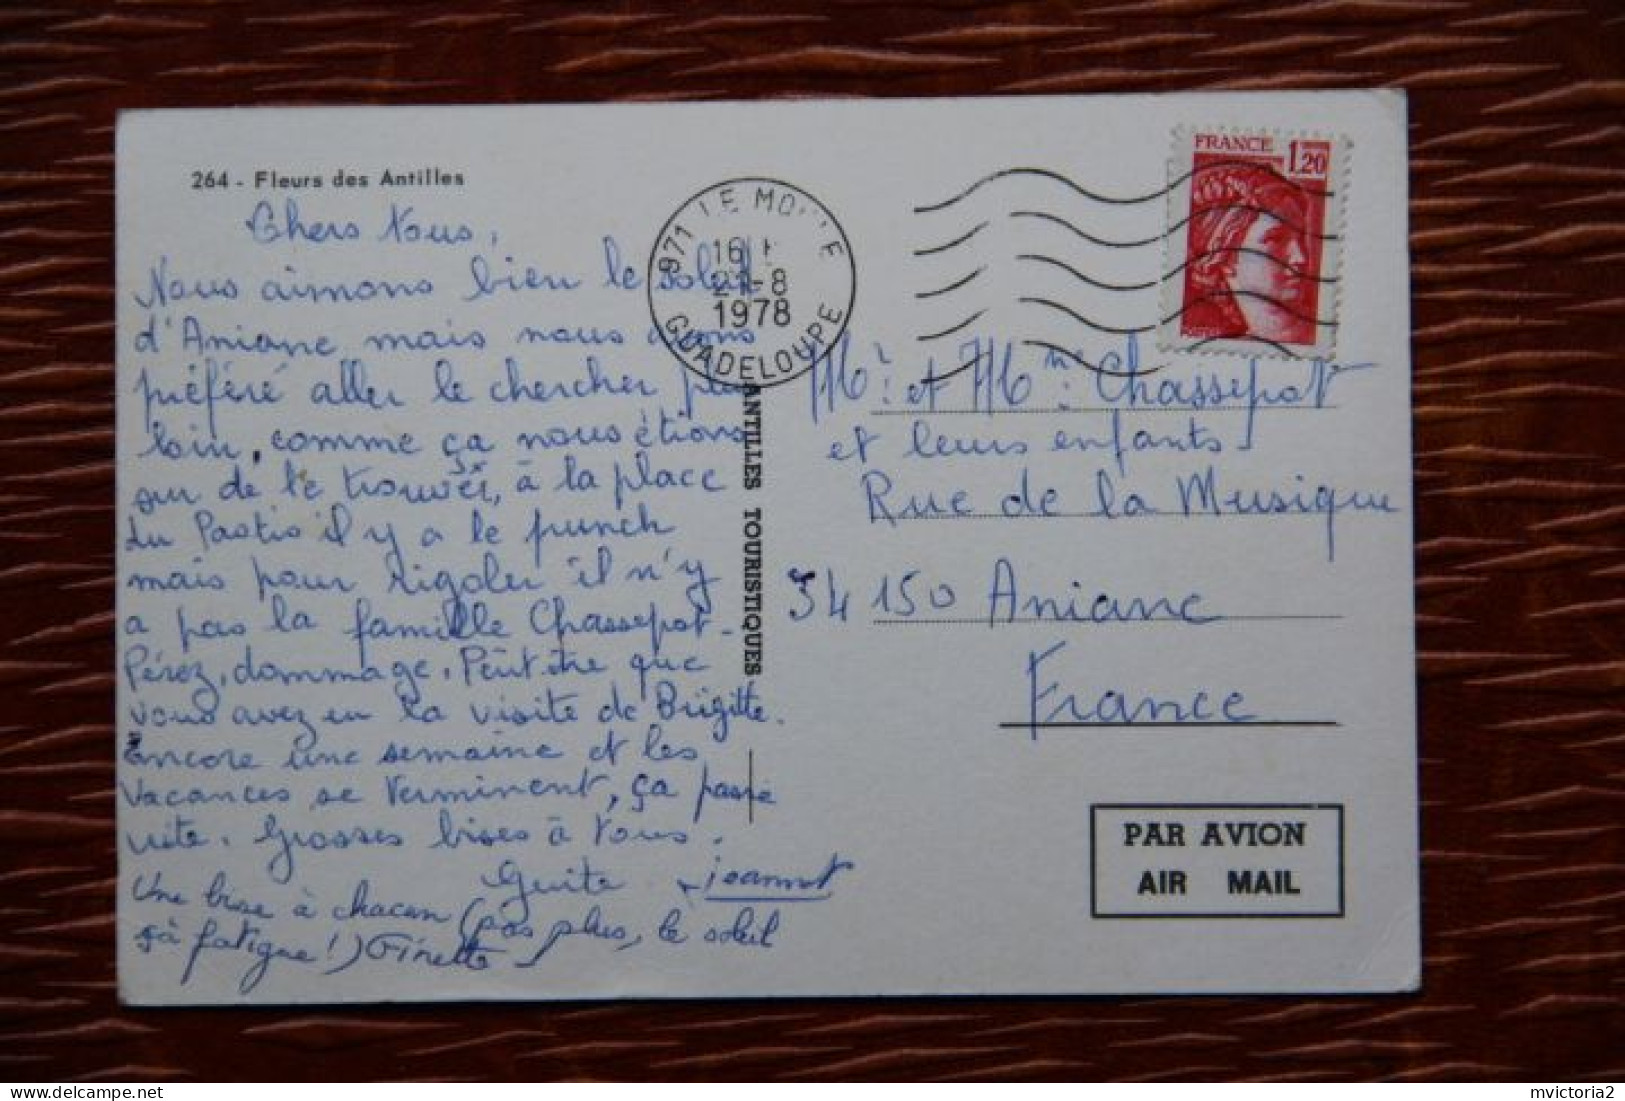 264 - Fleurs des Antilles
Chers Vous,
Nous aimons bien le soleil
d'Aniane mais nous avons
préféré aller le chercher plus
loin, comme ça nous étions
sur de le trouver, à la place
du Pastis il y a le punch
mais pour rigoler il n'y
a pas la famille Chassepot-
Pérez, dommage. Peut être que
vous avez eu la visite de Brigitte.
Encore une semaine et les
Vacances se terminent, ça passe
vite. Grosses bises à Vous.
Guite Jeannot
Une bise à chacun (pas plus, le soleil
çà fatigue!) Ginette
ANTILLES TOURISTIQUES
971 LE MOULE
16 H
21-8
1978
GUADELOUPE
FRANCE 1,20
Mr. et Mme. Chassepot
et leurs enfants
Rue de la Musique
34 150 Aniane
France
PAR AVION
AIR MAIL
mvictoria2